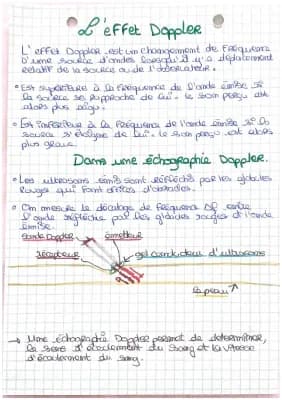 L'effet Doppler
L'effet Doppler est un changement de fréquence
D'une source d'ondes lorsqu'il y a déplacement
relatif de la source ou de l'observateur.
• Est supérieure à la fréquence de l'onde émise si
la source se rapproche de lui. le son perçu est
alors plus aigu.
• Est inférieure à la fréquence de l'onde émise si la
source s'éloigne de lui. le son perçu est alors
plus grave.
Dans une échographie Doppler.
• Les ultrasons émis sont réfléchis par les globules
Rouges qui font offices d'obstacles.
• On mesure le décalage de fréquence Δf entre
l'onde réfléchie par les globules rouges et l'onde
émise.
Sonde Doppler
émetteur
récepteur
gel conducteur d'ultrasons
la peau
→ Une échographie Doppler permet de déterminer,
le sens d'écoulement du sang et la vitesse
d'écoulement du sang.